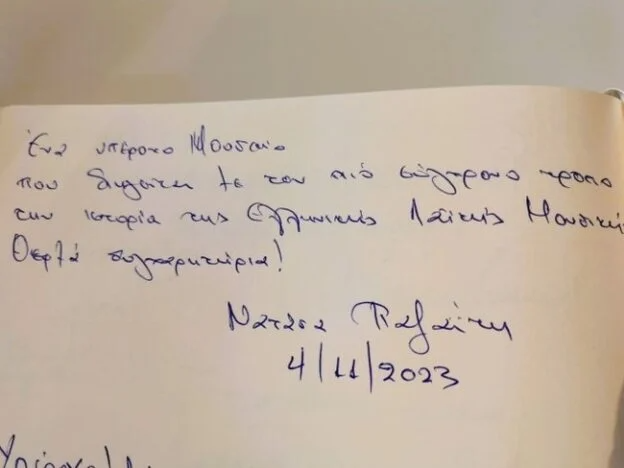 Ένα υπέροχο Μουσείο
που διηγείται με τον πιό σύγχρονο τρόπο
την ιστορία της Ελληνικής Λαϊκής Μουσική
Θερμά συγχαρητήρια!
Νατάσα Παζαΐτη
4/11/2023